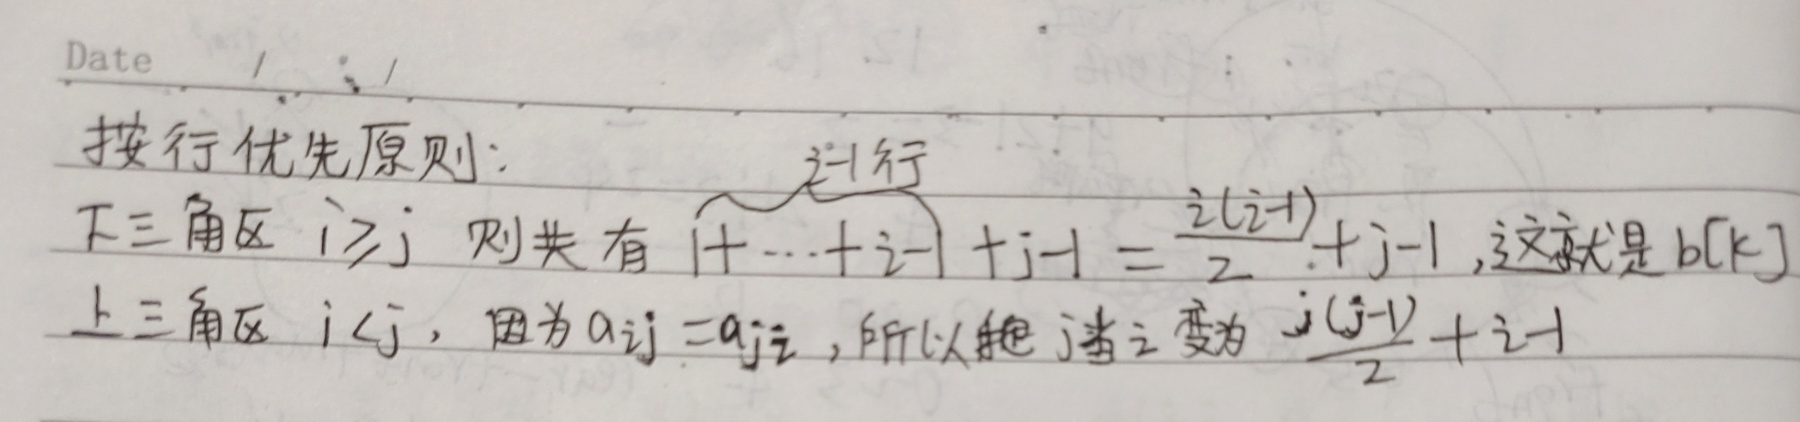 Date / /
按行优先原则:
i-1行
下三角区 i≥j 则共有 1+…+i-1+j-1 = i(i-1)/2 + j-1,这就是b[k]
上三角区 i<j, 因为aij=aji,所以把j当i变为 j(j-1)/2 + i-1